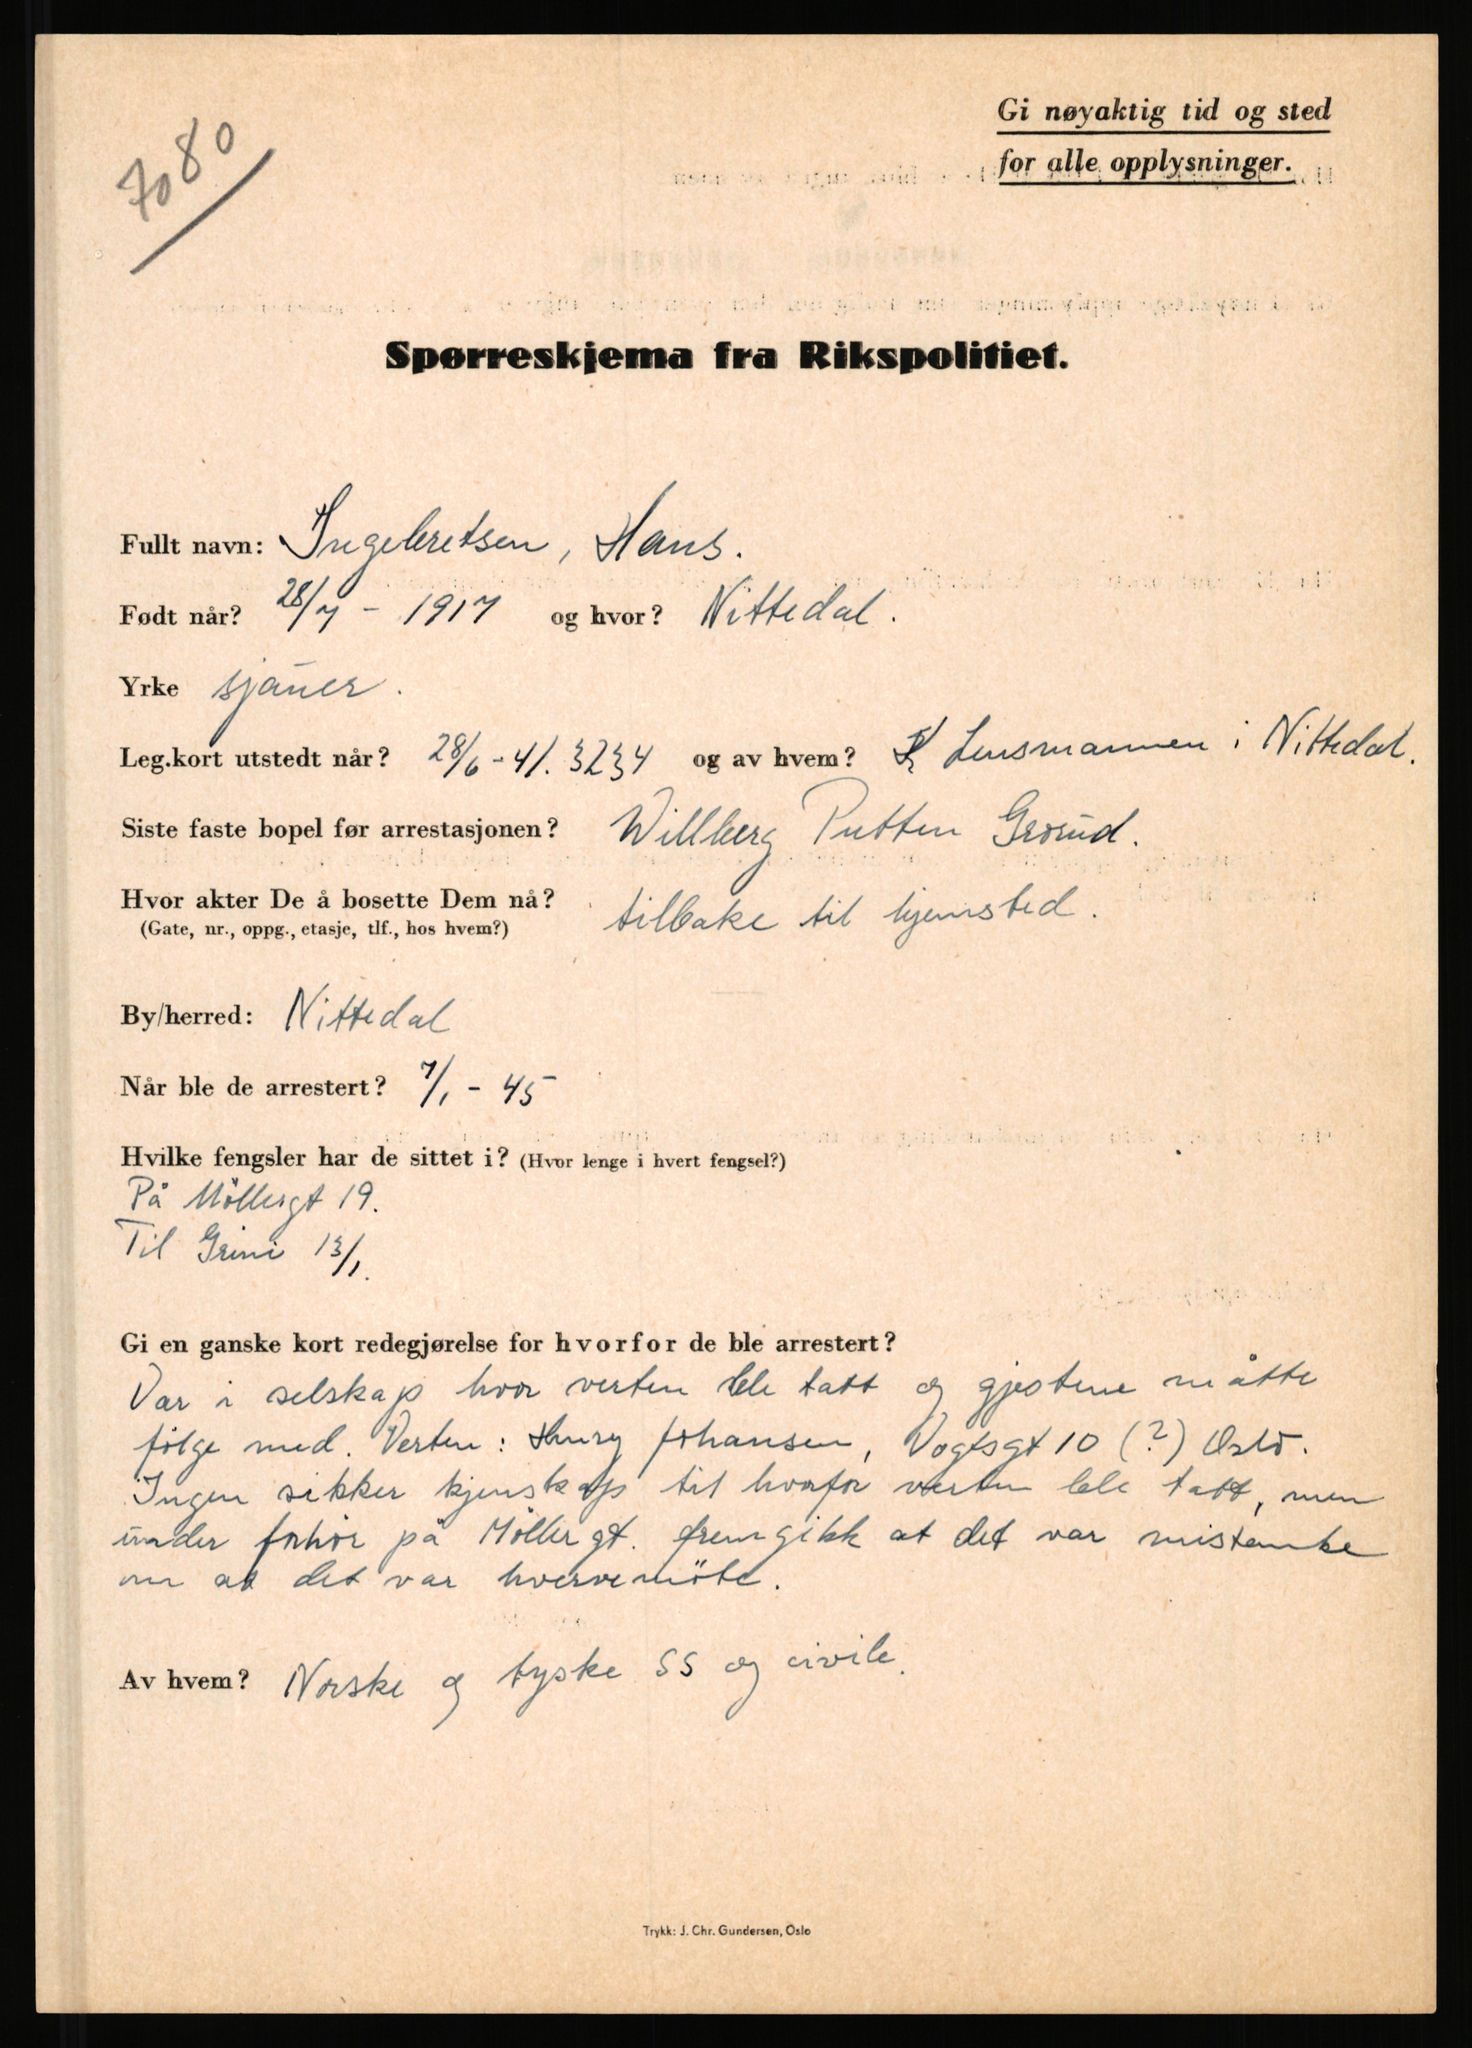 7080
Gi nøyaktig tid og sted
for alle opplysninger.
Spørreskjema fra Rikspolitiet.
Fullt navn: Ingebretsen, Hans.
Født når? 28/7 - 1917 og hvor? Nittedal.
Yrke sjåuer.
Leg.kort utstedt når? 28/6 - 41. 3234 og av hvem? Lensmannen i Nittedal.
Siste faste bopel før arrestasjonen? Willberg Putten Grorud.
Hvor akter De å bosette Dem nå? tilbake til hjemsted.
(Gate, nr., oppg., etasje, tlf., hos hvem?)
By/herred: Nittedal
Når ble de arrestert? 7/1 - 45
Hvilke fengsler har de sittet i? (Hvor lenge i hvert fengsel?)
På Möllergt 19.
Til Grini 13/1.
Gi en ganske kort redegjørelse for hvorfor de ble arrestert?
Var i selskap hvor verten ble tatt og gjestene måtte
følge med. Verten: Henry Johansen, Vogtsgt 10 (?) Oslo.
Ingen sikker kjenskap til hvorfor verten ble tatt, men
under forhör på Möllergt. fremgikk at det var mistanke
om at det var hvervemöte.
Av hvem? Norske og tyske SS og civile.
Trykk: J. Chr. Gundersen, Oslo